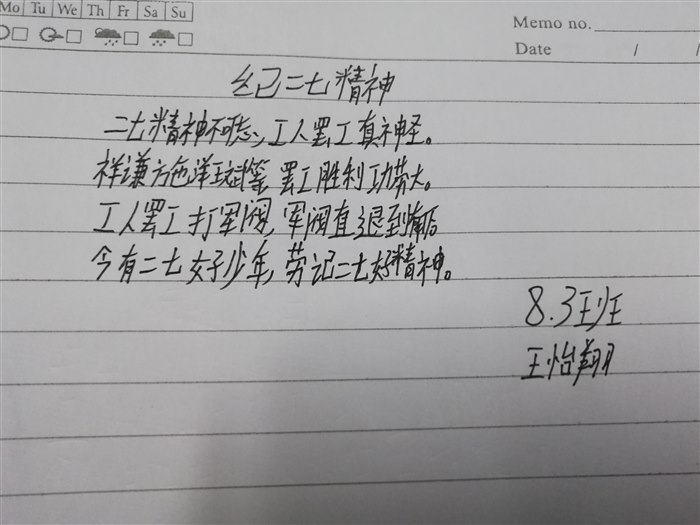 Mo Tu We Th Fr Sa Su
Memo no.
Date / /
纪二七精神
二七精神不可忘，工人罢工真神圣。
祥谦方施洋玩武等，罢工胜利功劳大。
工人罢工打军阀，军阀直退到
今有二七好少年，劳记二七好精神。
8.3班
王怡翔